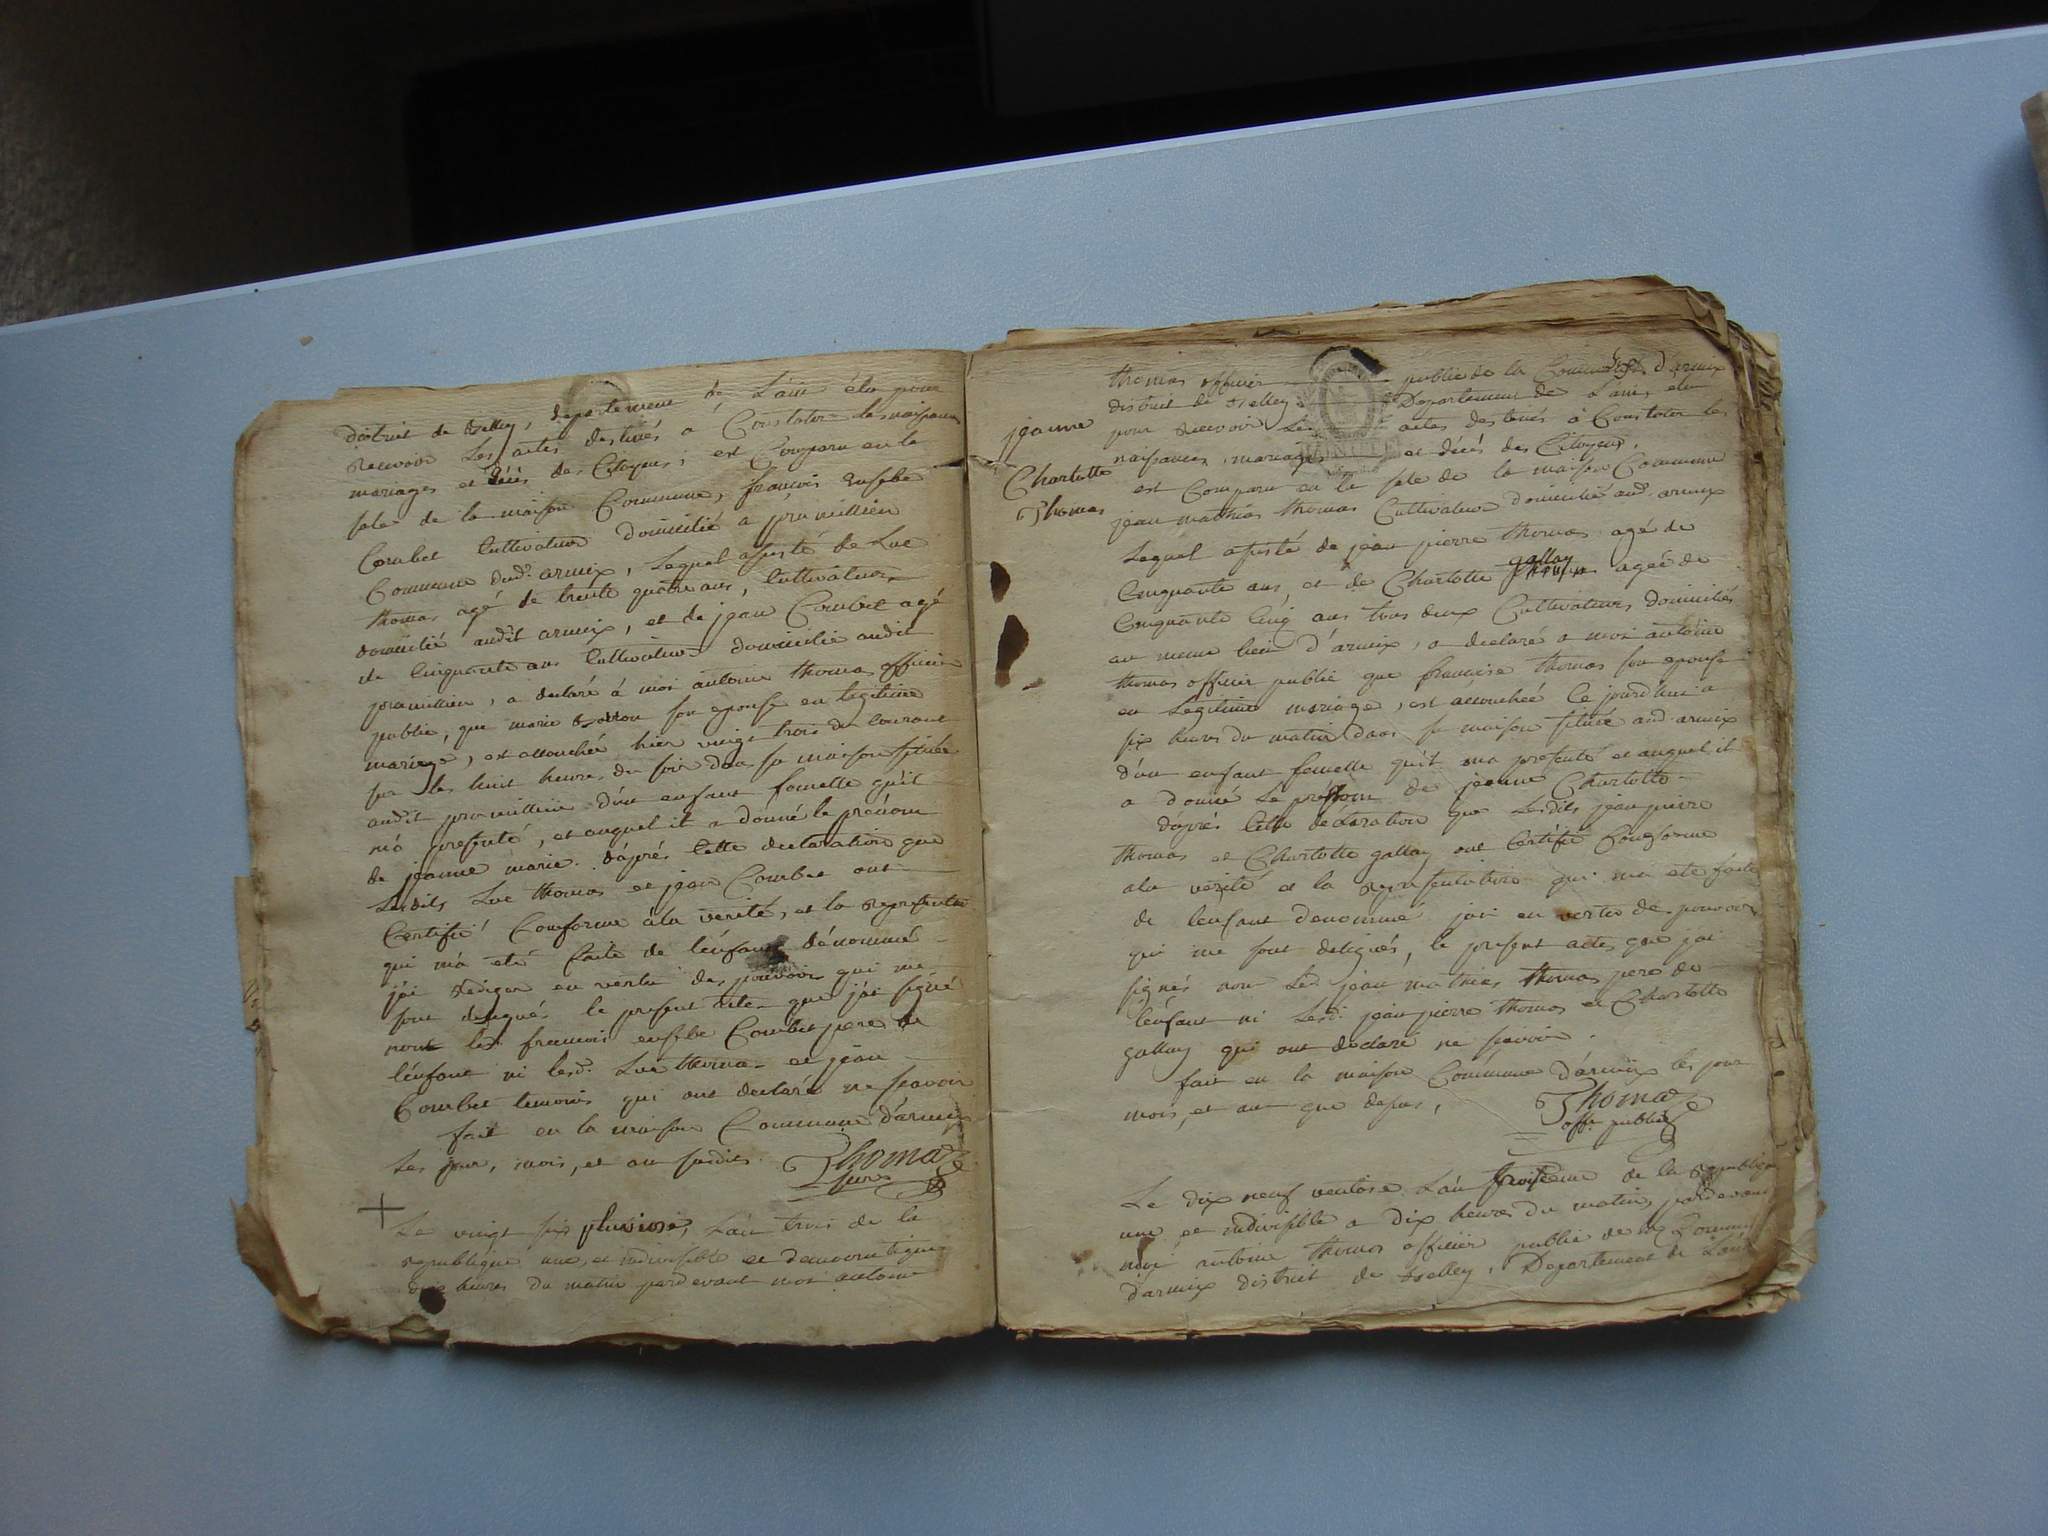 district de Belley, departement de L'ain élu pour
recevoir Les actes destinés a Constater les naissances
mariages et décés des Citoyens; est Comparu en la
sale de la maison Commune, françois Eusebe
Combet Cultivateur domicilié a pramillieu
Commune dud. armix, Lequel assisté de Luc
thomas agé de trente quatre ans, Cultivateur
domicilié audit armix, et de jean Combet agé
de Cinquante ans Cultivateur domicilié audit
pramillieu, a declaré à moi antoine thomas officier
public, que marie son epouse en legitime
mariage, est accouchée hier vingt trois du courant
sur les huit heures du soir dans sa maison située
audit pramillieu d'un enfant femelle qu'il
m'a presenté, et auquel il a donné le prénom
de jeanne marie. d'après Cette declaration que
Lesdits Luc thomas et jean Combet ont
Certifié Conforme a la verité, et la representation
qui m'a eté faite de l'enfant dénommé
j'ai redigé en vertu des pouvoirs qui me
sont delegués le present acte que j'ai signé
non led. francois eusebe Combet pere de
l'enfant ni lesd. Luc thomas et jean
Combet temoins qui ont declaré ne scavoir
fait en la maison Commune d'armix
Les jour, mois, et an susdits. Thomas
Le vingt six pluviose, L'an trois de la
republique une, et indivisible et democratique
dix heures du matin pardevant moi antoine
thomas officier public de la Commune d'armix
district de Belley Departement de L'ain, elu
jeanne
pour recevoir Les actes destinés à Constater les
naissances, mariages et décés des Citoyens,
Charlotte
est Comparu en la sale de la maison Commune
Thomas
jean mathias thomas Cultivateur domicilié aud. armix
Lequel assisté de jean pierre thomas agé de
gallay
Cinquante ans, et de Charlotte agée de
Cinquante Cinq ans tous deux Cultivateurs domiciliés
au meme lieu d'armix, a declaré a moi antoine
thomas officier public que francoise thomas son epouse
en Legitime mariage, est accouchée Ce jourd'hui a
six heures du matin dans sa maison située aud. armix
d'un enfant femelle qu'il ma presenté et auquel il
a donné Le prénom de jeanne Charlotte
d'après Cette déclaration que Lesdits jean pierre
thomas et Charlotte gallay ont Certifié Conforme
ala verité et la representation qui ma eté faite
de lenfant denommé jai en vertu de pouvoir
qui me sont delegués, le present actes que j'ai
signés non Led. jean mathias thomas pere de
l'enfant ni Lesd. jean pierre thomas et Charlotte
gallay qui ont declaré ne scavoir.
fait en la maison Commune d'armix les jour
mois, et an que dessus, Thomas
offr. public
Le dix neuf ventose L'an troisieme de la republique
une et indivisible a dix heures du matin, pardevant
moi antoine thomas officier public de la Commune
d'armix district de Belley, Departement de L'ain